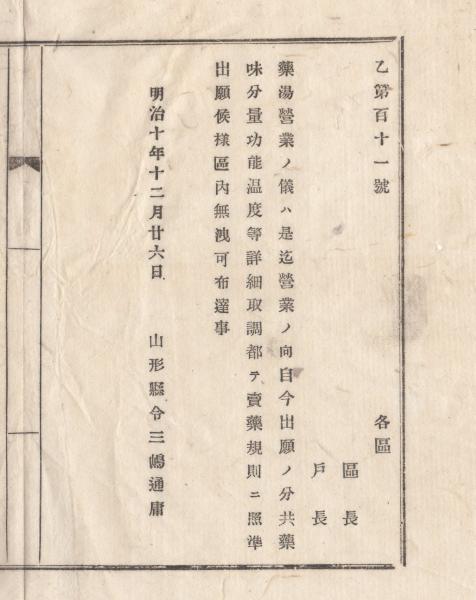 乙第百十一號
各區
區長
戶長
藥湯營業ノ儀ハ是迄營業ノ向自今出願ノ分共藥
味分量功能溫度等詳細取調都テ賣藥規則ニ照準
出願候樣區內無洩可布達事
明治十年十二月廿六日
山形縣令三嶋通庸